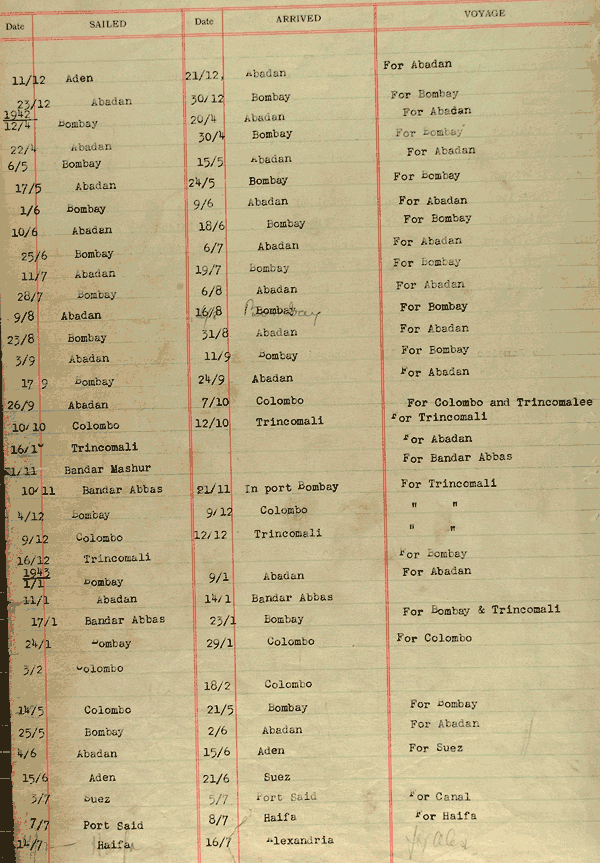 Date SAILED Date ARRIVED VOYAGE
11/12 Aden 21/12, Abadan For Abadan
23/12 Abadan 30/12 Bombay For Bombay
1942
12/4 Bombay 20/4 Abadan For Abadan
22/4 Abadan 30/4 Bombay For Bombay
6/5 Bombay 15/5 Abadan For Abadan
17/5 Abadan 24/5 Bombay For Bombay
1/6 Bombay 9/6 Abadan For Abadan
10/6 Abadan 18/6 Bombay For Bombay
25/6 Bombay 6/7 Abadan For Abadan
11/7 Abadan 19/7 Bombay For Bombay
28/7 Bombay 6/8 Abadan For Abadan
9/8 Abadan 16/8 Bombay For Bombay
23/8 Bombay 31/8 Abadan For Abadan
3/9 Abadan 11/9 Bombay For Bombay
17 9 Bombay 24/9 Abadan For Abadan
26/9 Abadan 7/10 Colombo For Colombo and Trincomalee
10/10 Colombo 12/10 Trincomali For Trincomali
Trincomali For Abadan
Bandar Mashur For Bandar Abbas
10/11 Bandar Abbas 21/11 In port Bombay For Trincomali
4/12 Bombay 9/12 Colombo " "
9/12 Colombo 12/12 Trincomali " "
16/12 Trincomali For Bombay
1943
1/1 Bombay 9/1 Abadan For Abadan
11/1 Abadan 14/1 Bandar Abbas
17/1 Bandar Abbas 23/1 Bombay For Bombay & Trincomali
24/1 Bombay 29/1 Colombo For Colombo
3/2 Colombo
18/2 Colombo
14/5 Colombo 21/5 Bombay For Bombay
25/5 Bombay 2/6 Abadan For Abadan
4/6 Abadan 15/6 Aden For Suez
15/6 Aden 21/6 Suez
3/7 Suez 5/7 Port Said For Canal
7/7 Port Said 8/7 Haifa For Haifa
14/7 Haifa 16/7 Alexandria